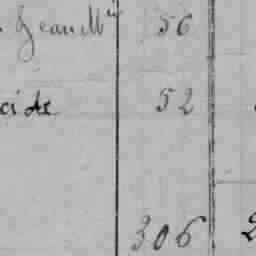 Jean Mie 56
cide 52
306 2